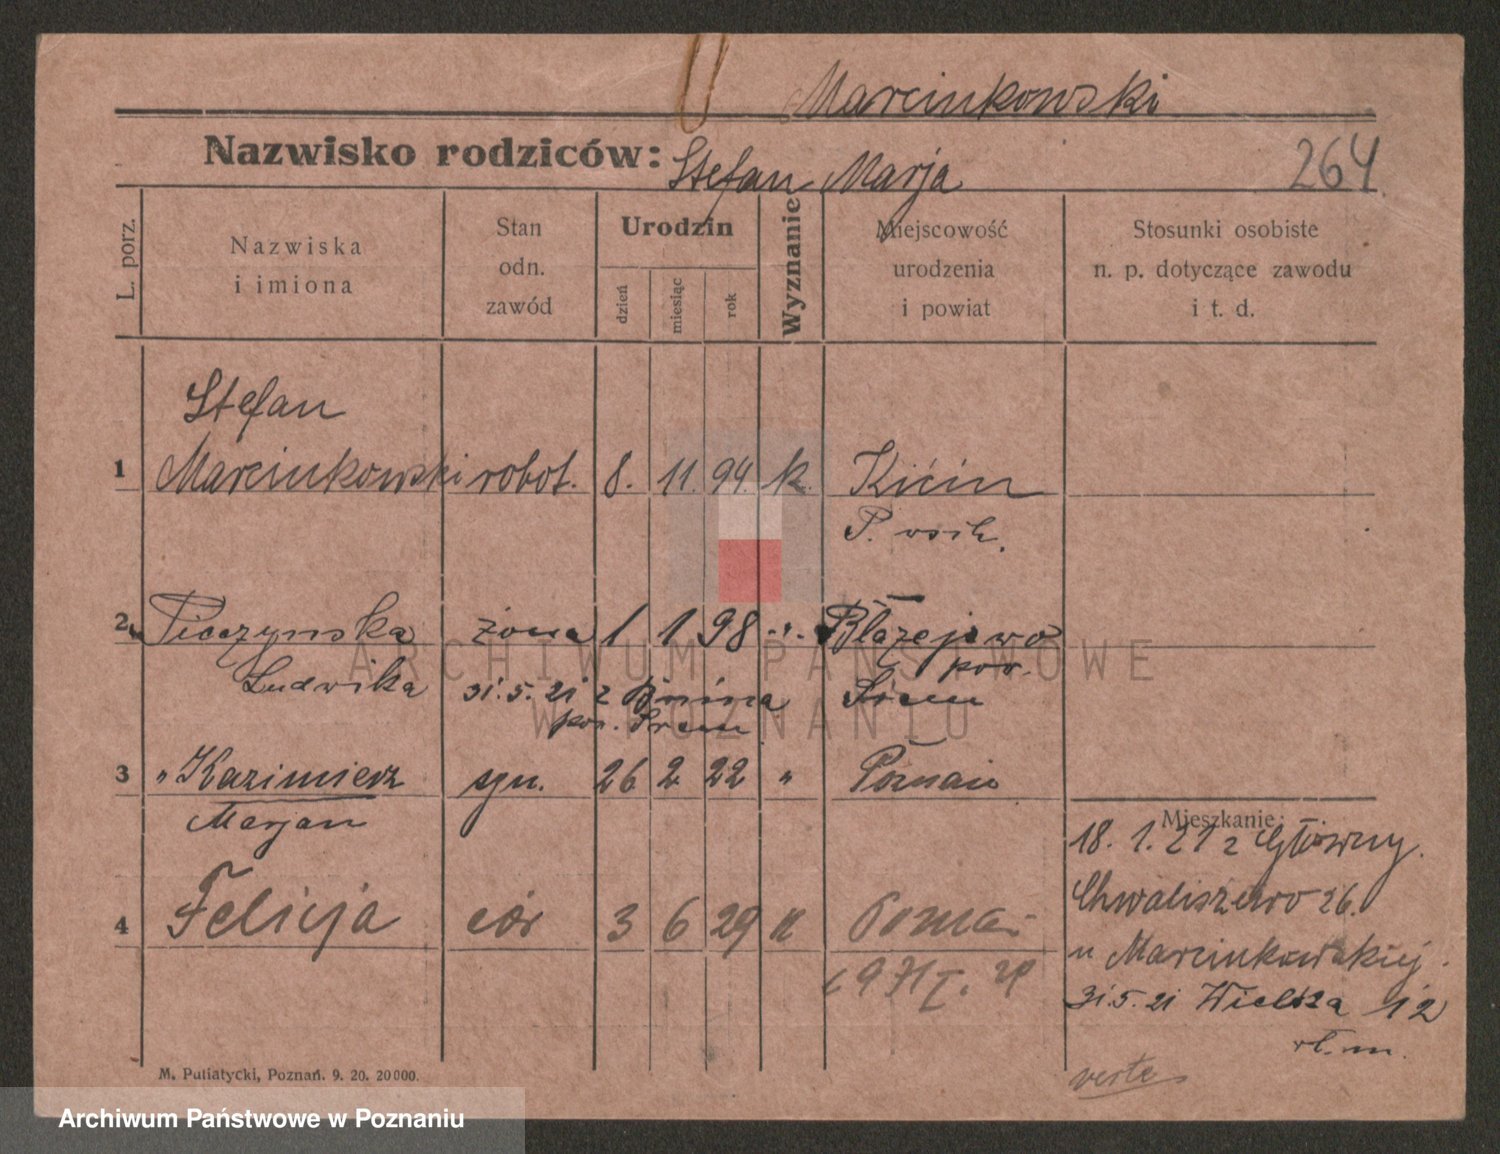 Marcinkowski
Nazwisko rodziców: Stefan Marja 264
L. porz.
Nazwiska
i imiona
Stan
odn.
zawód
Urodzin
dzień
miesiąc
rok
Wyznanie
Miejscowość
urodzenia
i powiat
Stosunki osobiste
n. p. dotyczące zawodu
i t. d.
Stefan
1 Marcinkowski robot. 8. 11. 94. k. Kićin
P. wsch.
2 Pieczyńska żona 1 1 98 Błażejewo
pow.
Ludwika 31.5.21 z Bnina Śrem
pow. Śrem
3 " Kazimierz syn. 26 2 22 " Poznań
Marjan
Mieszkanie:
18. 1. 21 z Główny.
Chwaliszewo 26.
4 Felicja cór 3 6 29 k Poznań
u Marcinkowskiej.
31.5.21 Wielka 12
wł. m.
verte
M. Putiatycki, Poznań. 9. 20. 20000.
ARCHIWUM PAŃSTWOWE
W POZNANIU
Archiwum Państwowe w Poznaniu